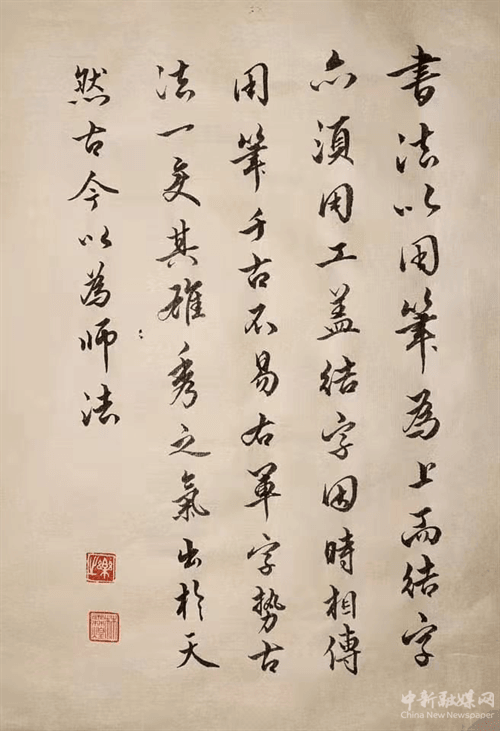 書法以用筆為上而結字
亦須用工蓋結字因時相傳
用筆千古不易右軍字勢古
法一變其雄秀之氣出於天
然古今以為師法
中新融媒网
China New Newspaper